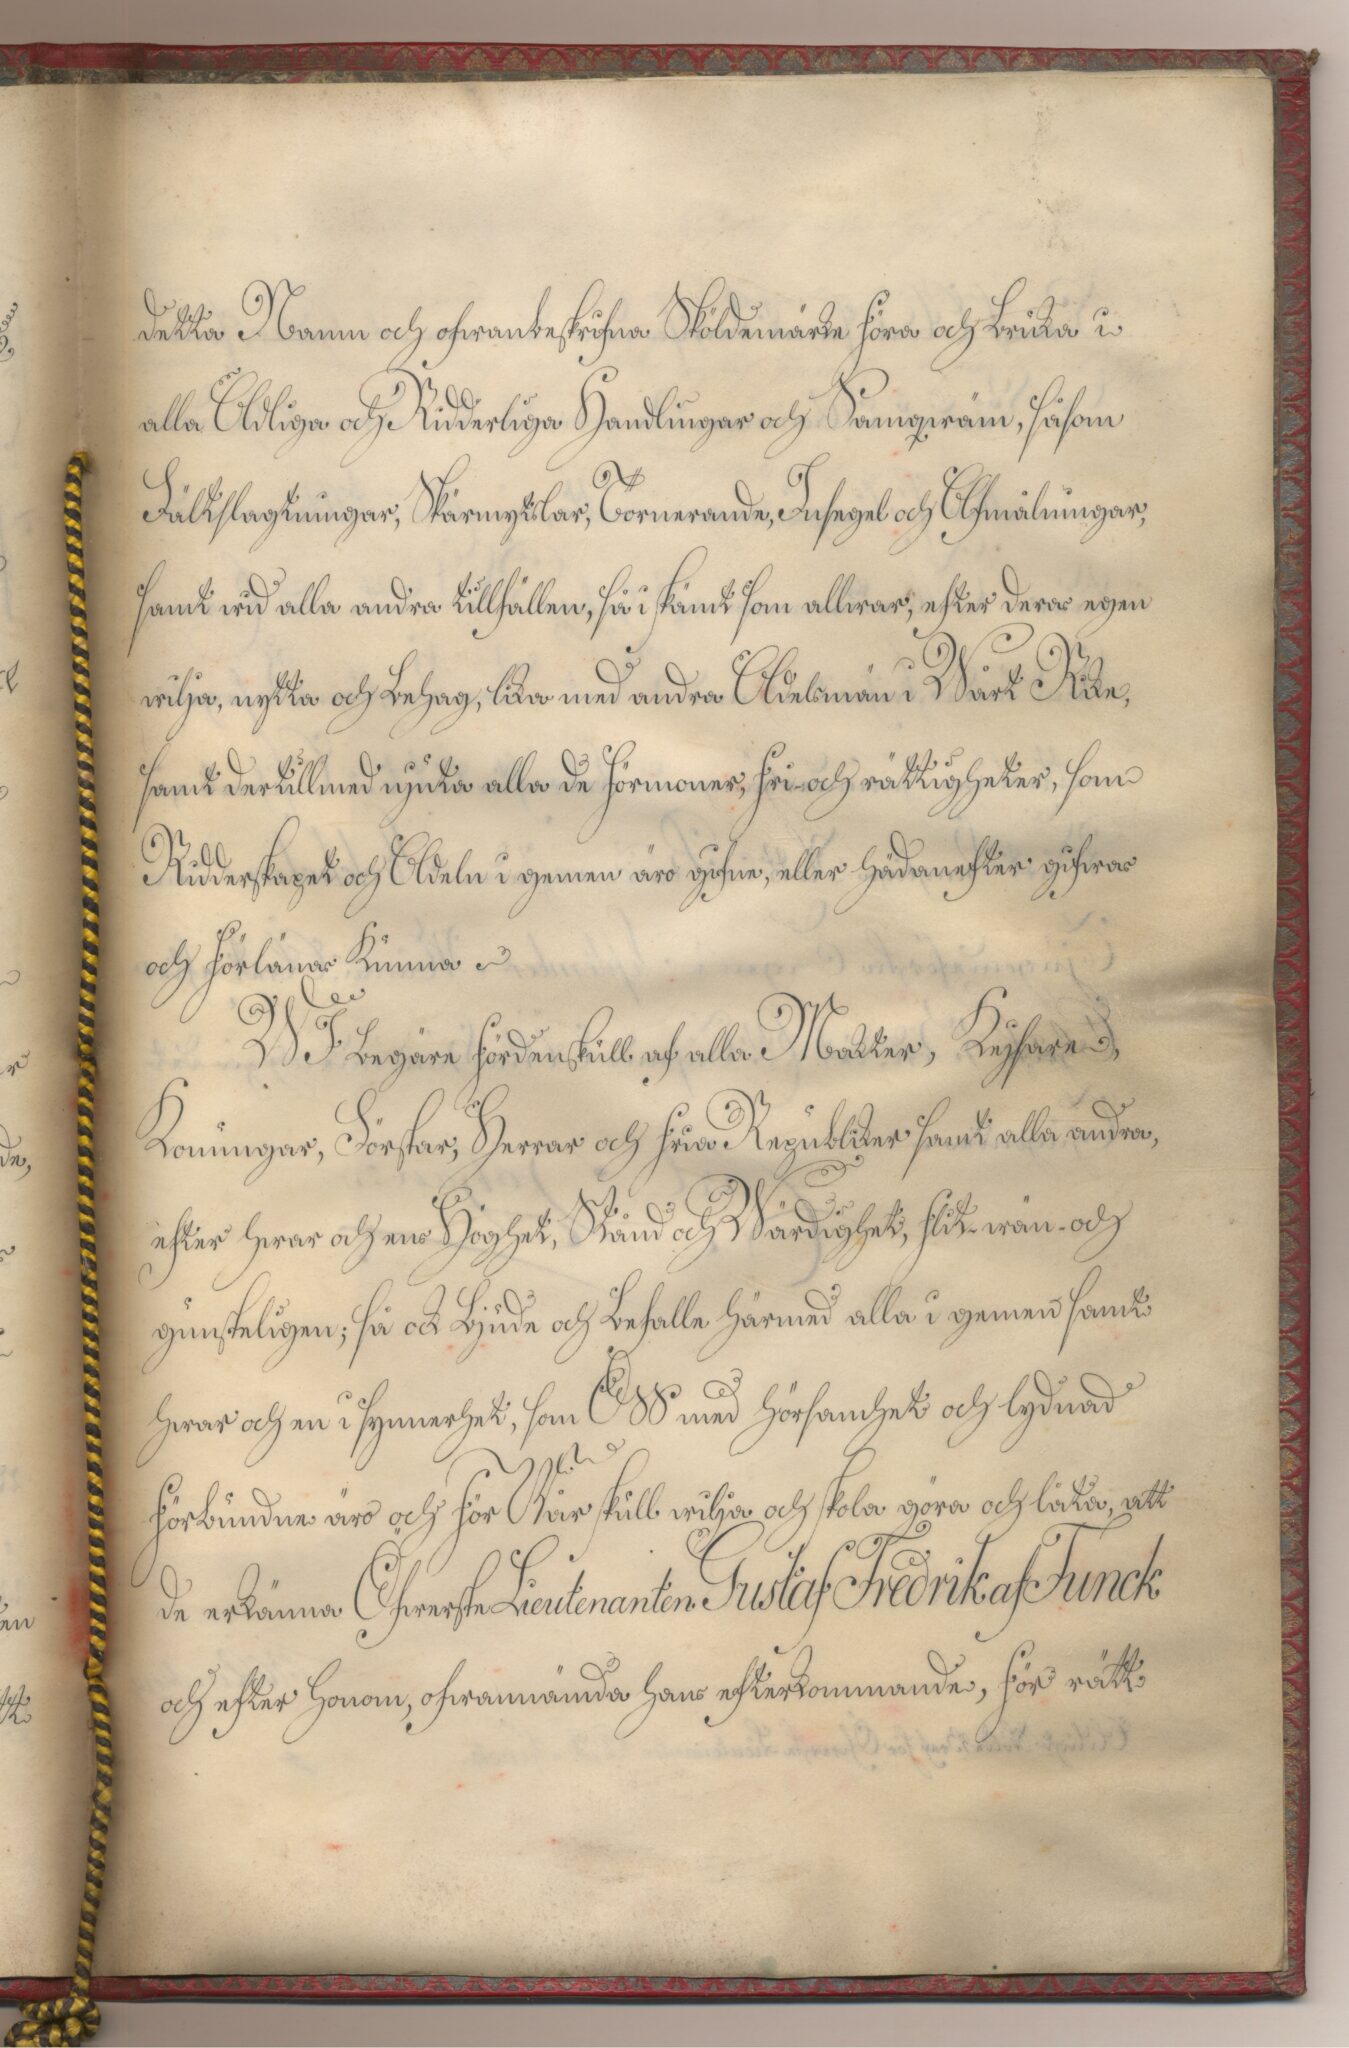 detta Namn och ofwanbeskrifna Sköldemärke föra och bruka i
alla Adliga och Ridderliga Handlingar och Samqwäm, såsom
Fältslagtningar, Skärmytslar, Törnerande, Insegel och Afmålningar,
samt wid alla andra tillfällen, så i skämt som allwar, efter deras egen
wilja, nytta och behag, lika med andra Adelsmän i Wårt Rike,
samt dertillmed njuta alla de förmoner, fri- och rättigheter, som
Ridderskapet och Adeln i gemen äro gifne, eller hädanefter gifwas
och förlänas kunna.
WI begäre fördenskull af alla Makter, Kejsare,
Konungar, Förstar, Herrar och fria Republiker samt alla andra,
efter hwar och ens Höghet, Stånd och Wärdighet, flit- wän- och
gunsteligen; så ock bjude och befalle härmed alla i gemen samt
hwar och en i synnerhet, som OSS med hörsamhet och lydnad
förbundne äro och för Wår skull wilja och skola göra och låta, att
de erkänna Öfwerste Lieutenanten Gustaf Fredrik af Funck
och efter honom, ofwannämda hans efterkommande, för rätt